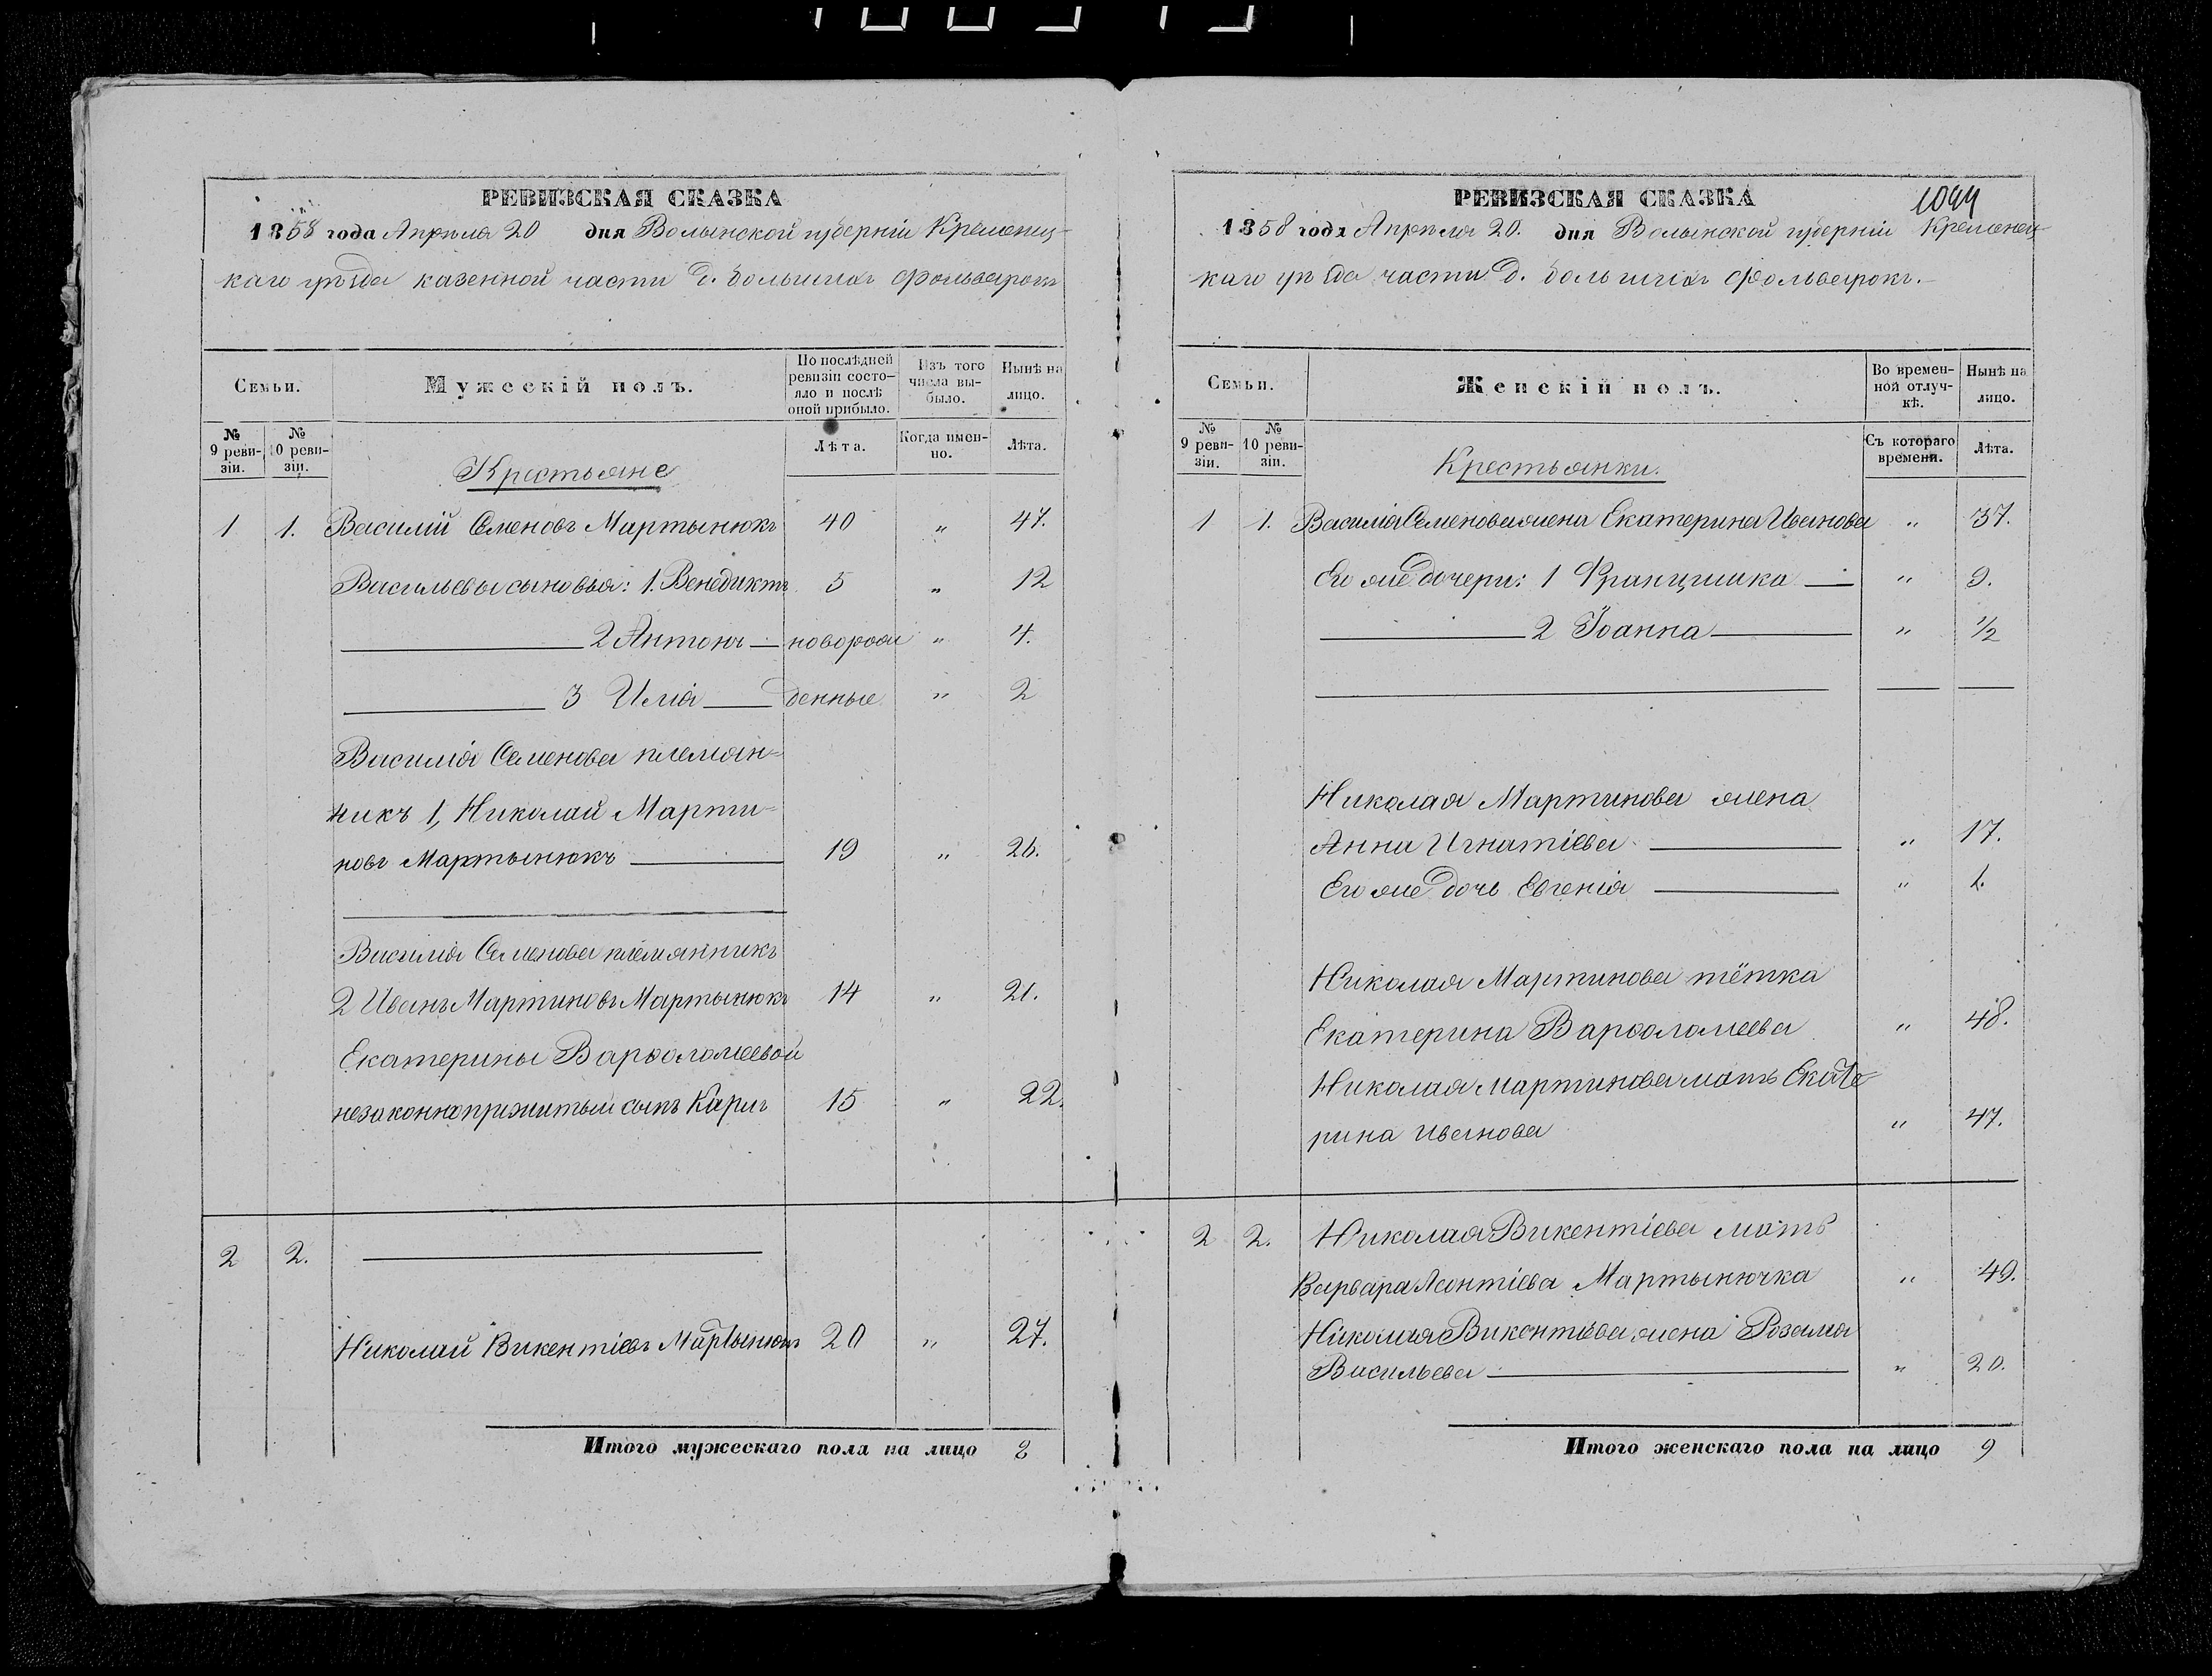 РЕВИЗСКАЯ СКАЗКА
1858 года Апреля 20 дня Волынской губерніи Кременец-
каго уѣзда казенной части д. Большихъ Фольварокъ
Семьи.
Мужескій полъ.
По послѣдней ревизіи состо-яло и послѣ оной прибыло.
Изъ того числа вы-было.
Нынѣ на лицо.
№ 9 реви-зіи.
№ 10 реви-зіи.
Крестьяне
Лѣта.
Когда имен-но.
Лѣта.
1 1. Василій Семеновъ Мартынюкъ 40 „ 47.
Васильевы сыновья: 1. Венедиктъ 5 „ 12
2 Антонъ новорож „ 4.
3 Илія денные „ 2
Василія Семенова племян-
никъ 1, Николай Марти-
новъ Мартынюкъ 19 „ 26.
Василія Семенова племянникъ
2 Иванъ Мартиновъ Мартынюкъ 14 „ 21.
Екатерины Варфоломеевой
незаконноприжитый сынъ Карлъ 15 „ 22.
2 2.
Николай Викентіевъ Мартынюкъ 20 „ 27.
Итого мужескаго пола на лицо 8
РЕВИЗСКАЯ СКАЗКА
1044
1858 года Апреля 20. дня Волынской губерніи Кременец-
каго уѣзда части д. Большихъ Фольварокъ.
Семьи.
Женскій полъ.
Во времен-ной отлуч-кѣ.
Нынѣ на лицо.
№ 9 реви-зіи.
№ 10 реви-зіи.
Крестьянки.
Съ котораго времени.
Лѣта.
1 1. Василія Семенова жена Екатерина Иванова „ 37.
Его же дочери: 1 Францишка „ 9.
2 Іоанна „ 1/2
Николая Мартинова жена
Анна Игнатіева „ 17.
Его же дочь Евгенія „ 1.
Николая Мартинова тётка
Екатерина Варфоломеева „ 48.
Николая Мартинова мать Екате-
рина Иванова „ 47.
2 2. Николая Викентіева мать
Варвара Леонтіева Мартынючка „ 49.
Николая Викентіева жена Розалія
Васильева „ 20.
Итого женскаго пола на лицо 9